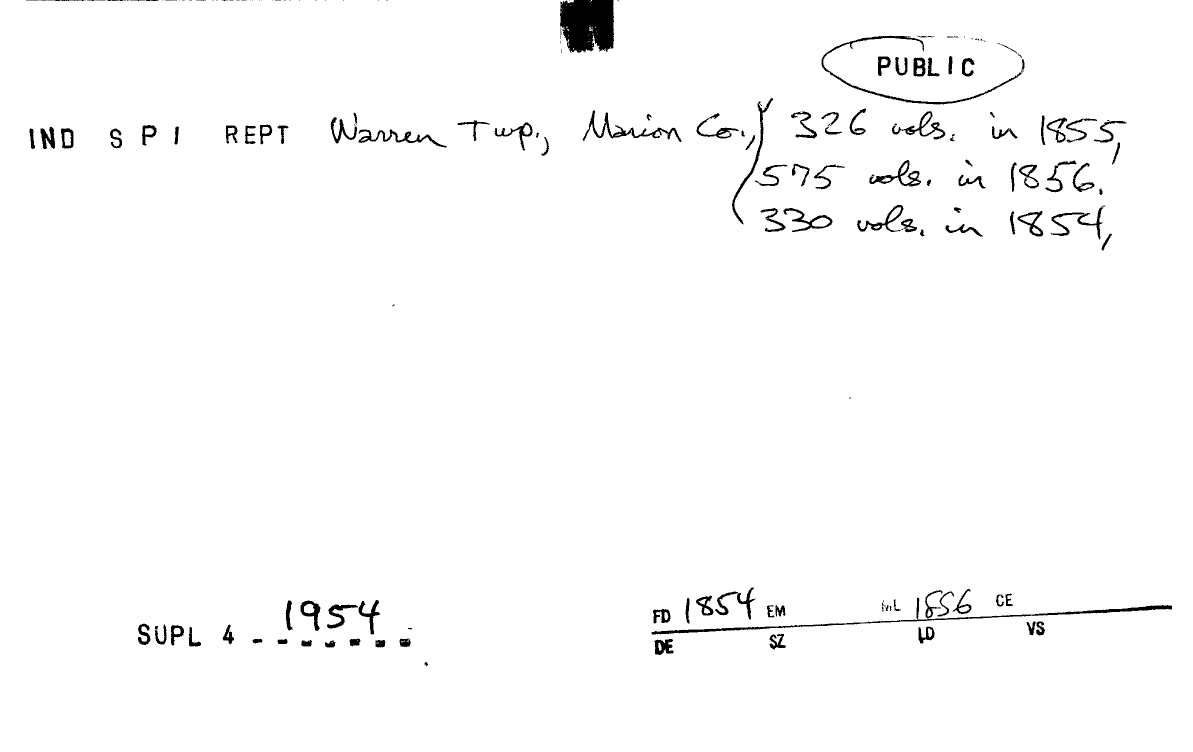 PUBLIC
IND S P I REPT Warren Twp., Marion Co., 326 vols. in 1855,
575 vols. in 1856.
330 vols. in 1854,
SUPL 4 1954
FD 1854 EM InL 1856 CE
DE SZ LD VS